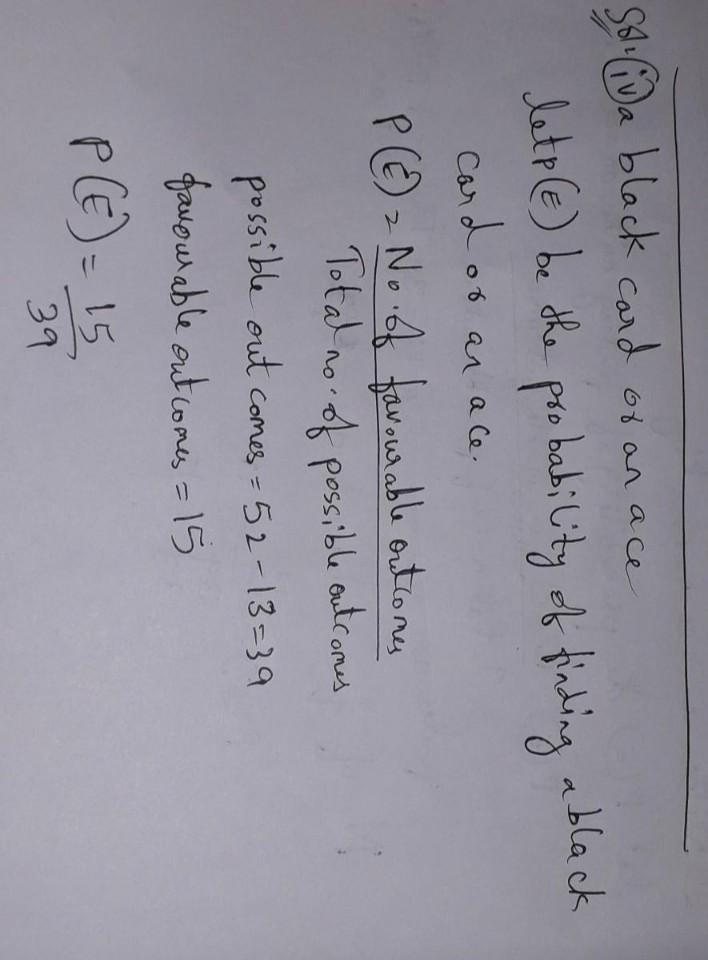 Sol. (iv) a black card or an ace
let P(E) be the probability of finding a black
card or an ace.
P(E) = No. of favourable outcomes
Total no. of possible outcomes
possible outcomes = 52 - 13 = 39
favourable outcomes = 15
P(E) = 15
39